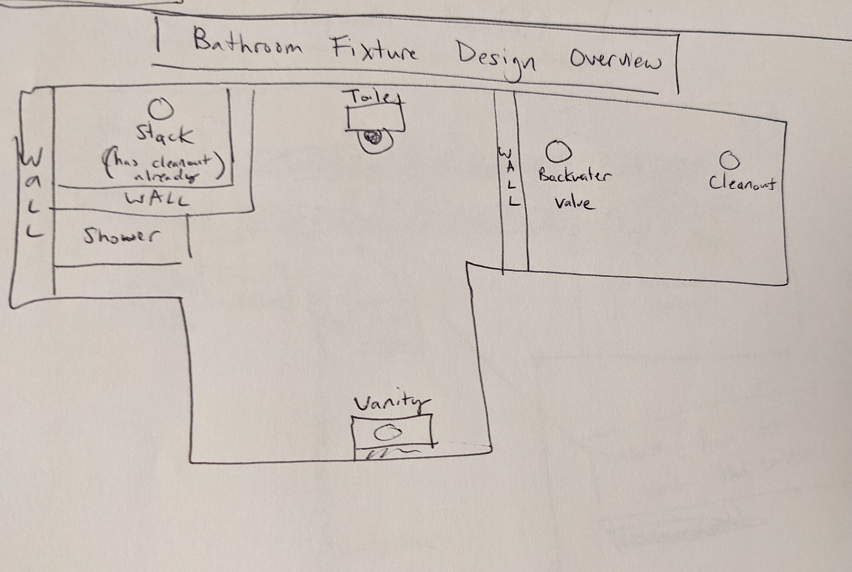 Bathroom Fixture Design Overview
Toilet
Stack
(has cleanout
already)
WALL
WALL
Shower
WALL
Backwater
valve
Cleanout
Vanity